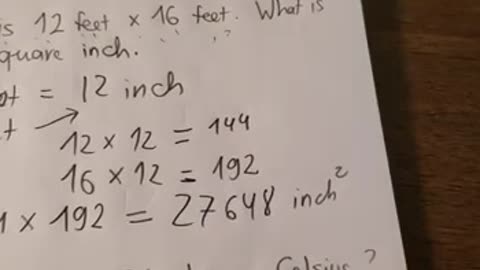 is 12 feet × 16 feet. What is
quare inch.
ot = 12 inch
t →
12 × 12 = 144
16 × 12 = 192
1 × 192 = 27648 inch²
Celsius?